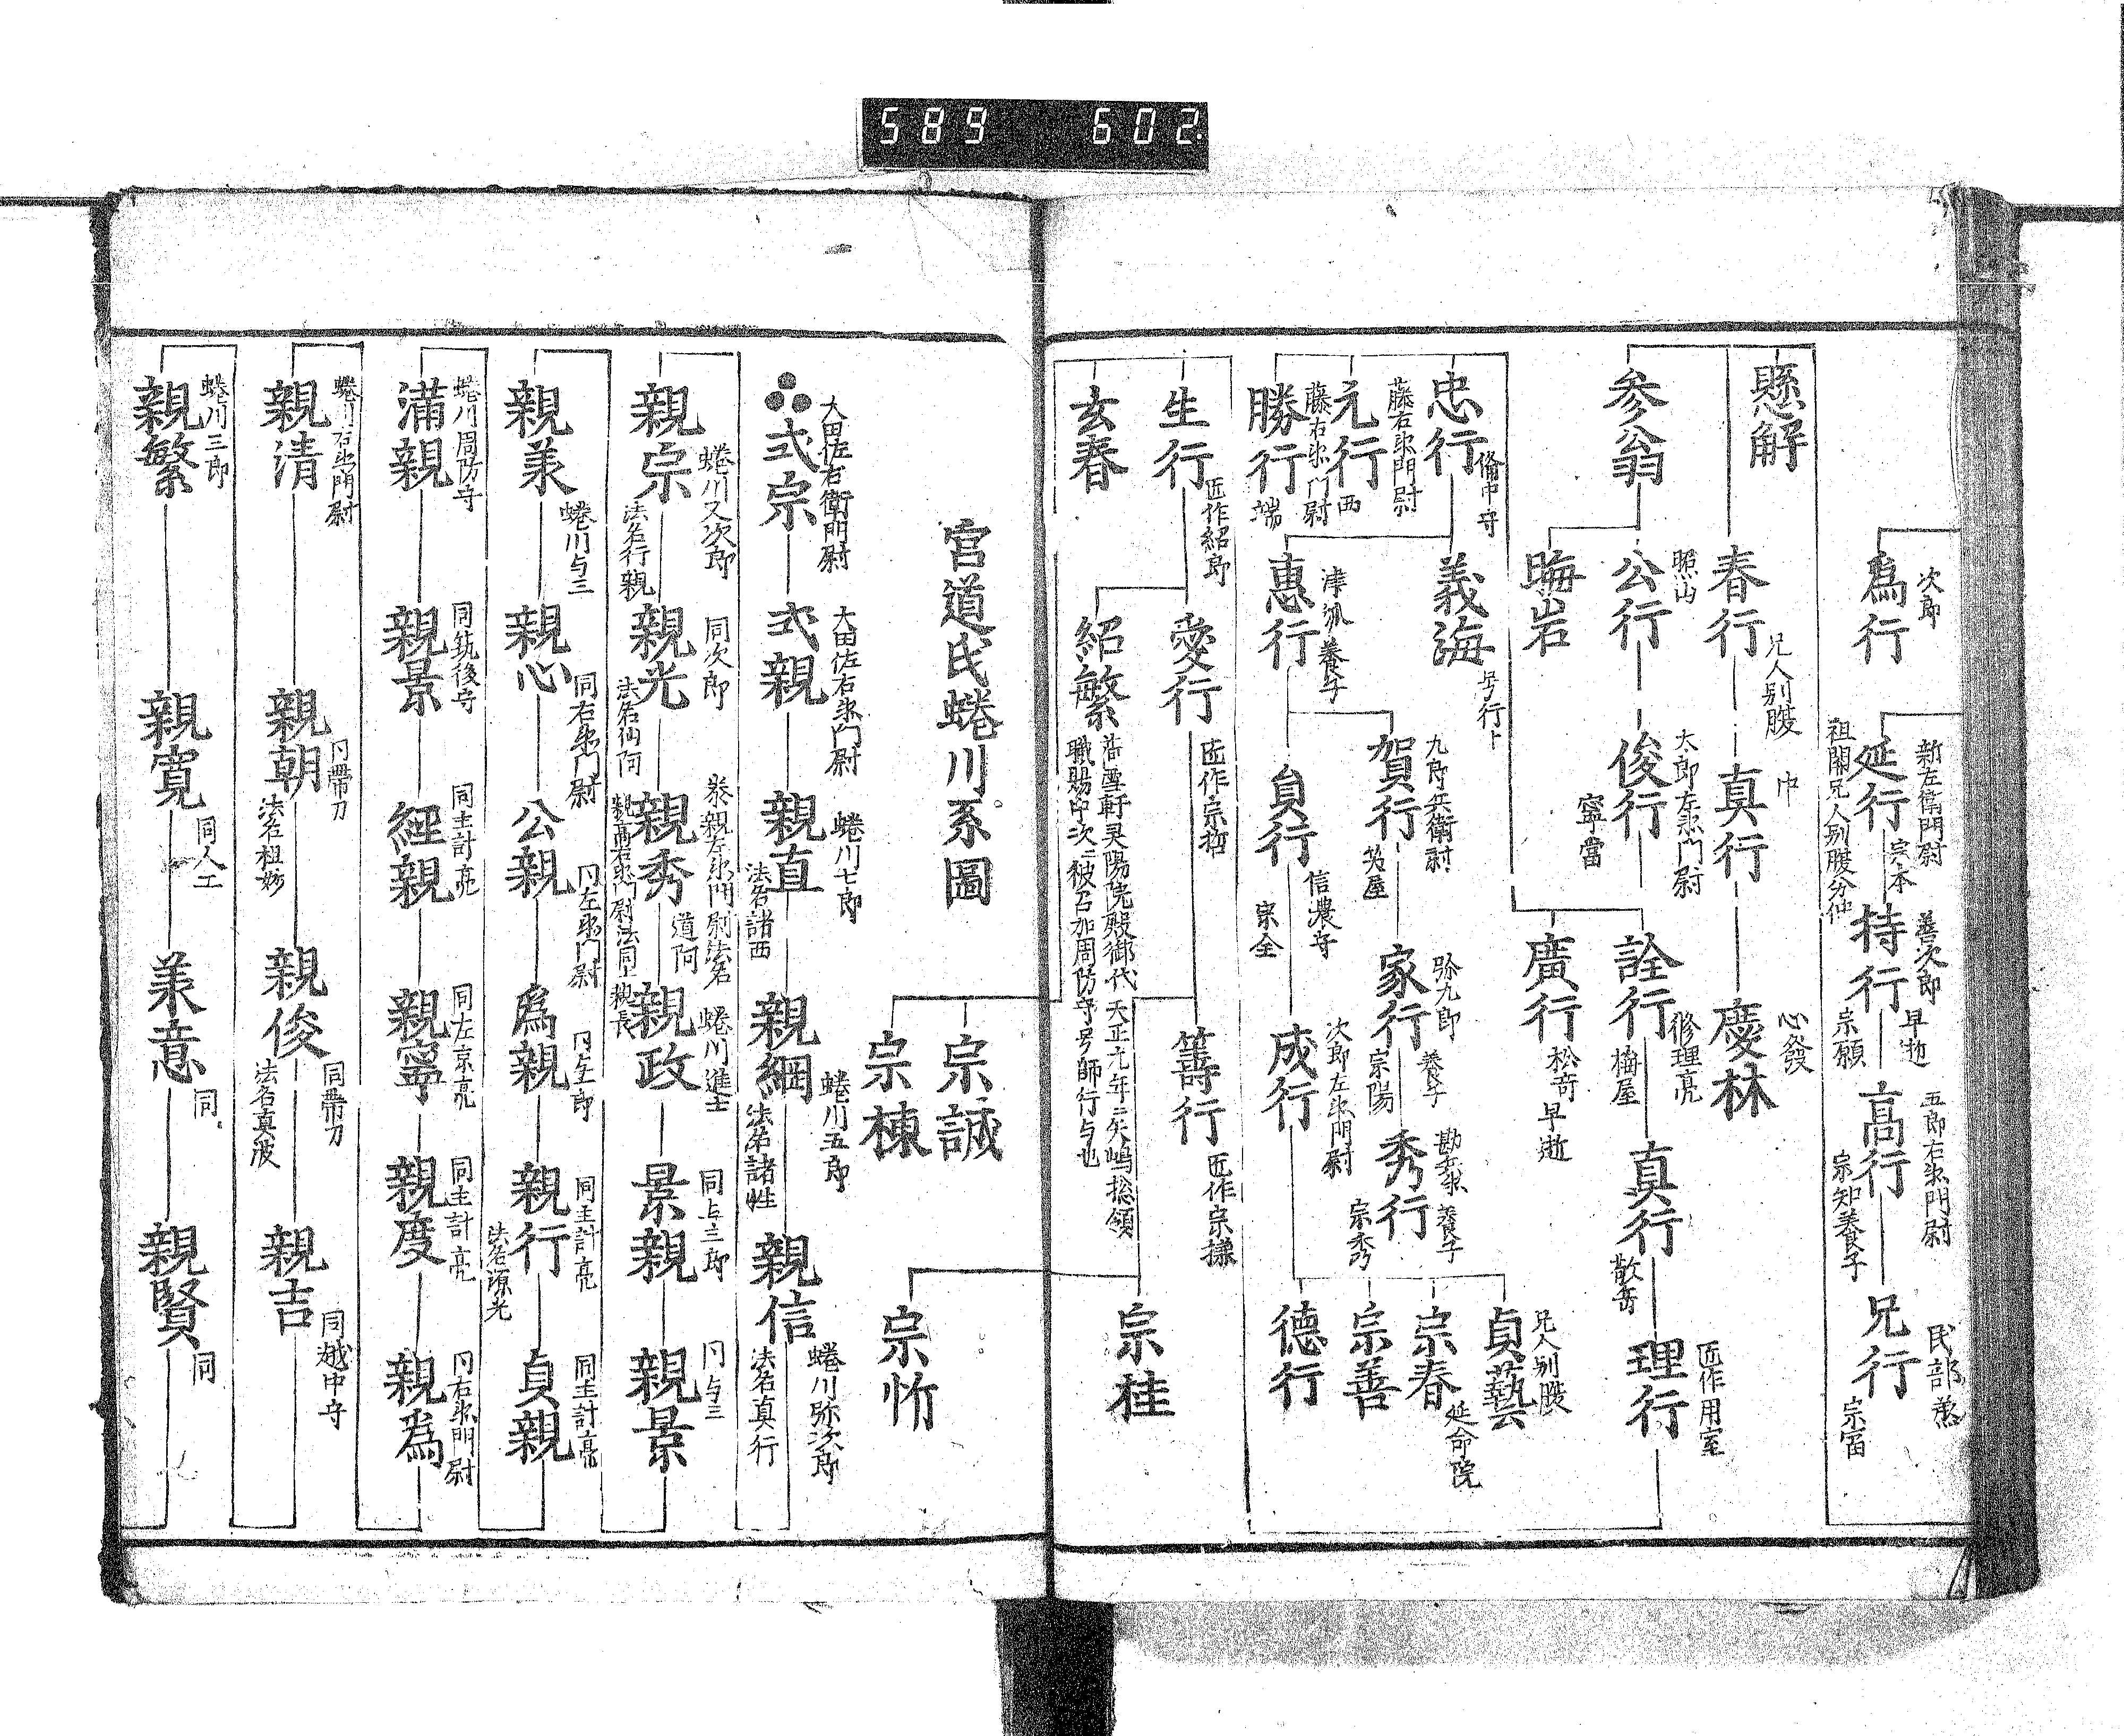 589 602
次郎
為行
新左衛門尉
延行
宗本
祖開兄人別腹分仲
善次郎
早逝
持行
宗願
五郎右衆門尉
高行
宗知養子
民部丞
兄行
宗宙
懸解
春行
兄人別腹
真行
中
慶林
心發
参翁
照山
公行
太郎左衆門尉
俊行
寧當
晦岩
修理亮
詮行
梅屋
真行
散斎
匠作用室
理行
廣行
松斎早逝
備中守
忠行
藤右衆門尉
元行
西
藤右衆門尉
勝行
端
義海
号行卜
津汎養子
惠行
九郎兵衛尉
賀行
笑屋
弥九郎
養子
家行
宗陽
勘左衆
養子
秀行
宗秀
信濃守
貞行
宗全
次郎左衆門尉
成行
兄人別腹
貞藝
宗春
延命院
宗善
德行
生行
匠作紹郎
玄春
愛行
匠作宗哲
紹繁
善行
匠作宗據
宗桂
宗忻
宗誠
宗棟
宮道氏蜷川系圖
大田佐右衛門尉
式宗
大田佐右衆門尉
式親
蜷川七郎
親直
法名諸西
蜷川五郎
親綱
法名諸性
蜷川弥次郎
親信
法名真行
蜷川又次郎
親宗
法名行親
同次郎
親光
法名仙阿
親秀
道阿
蜷川進士
親政
同与三郎
景親
同与三
親景
親羕
蜷川与三
親心
同右衆門尉
公親
同左衆門尉
為親
親行
同主計亮
法名源光
貞親
同主計亮
蜷川周防守
満親
同筑後守
親景
同主計亮
經親
同左京亮
親寧
同主計亮
親度
同右衆門尉
親為
蜷川右衆門尉
親清
同帶刀
親朝
法名祖妙
同帶刀
親俊
法名真波
同越中守
親吉
蜷川三郎
親繁
親寛
同人工
羕意
同
親賢
同